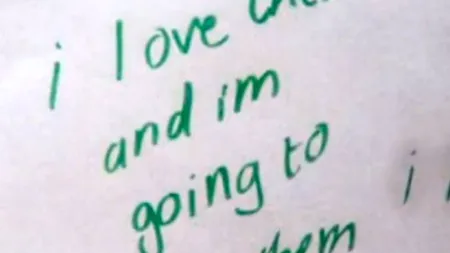 i love
and im
going to
them i